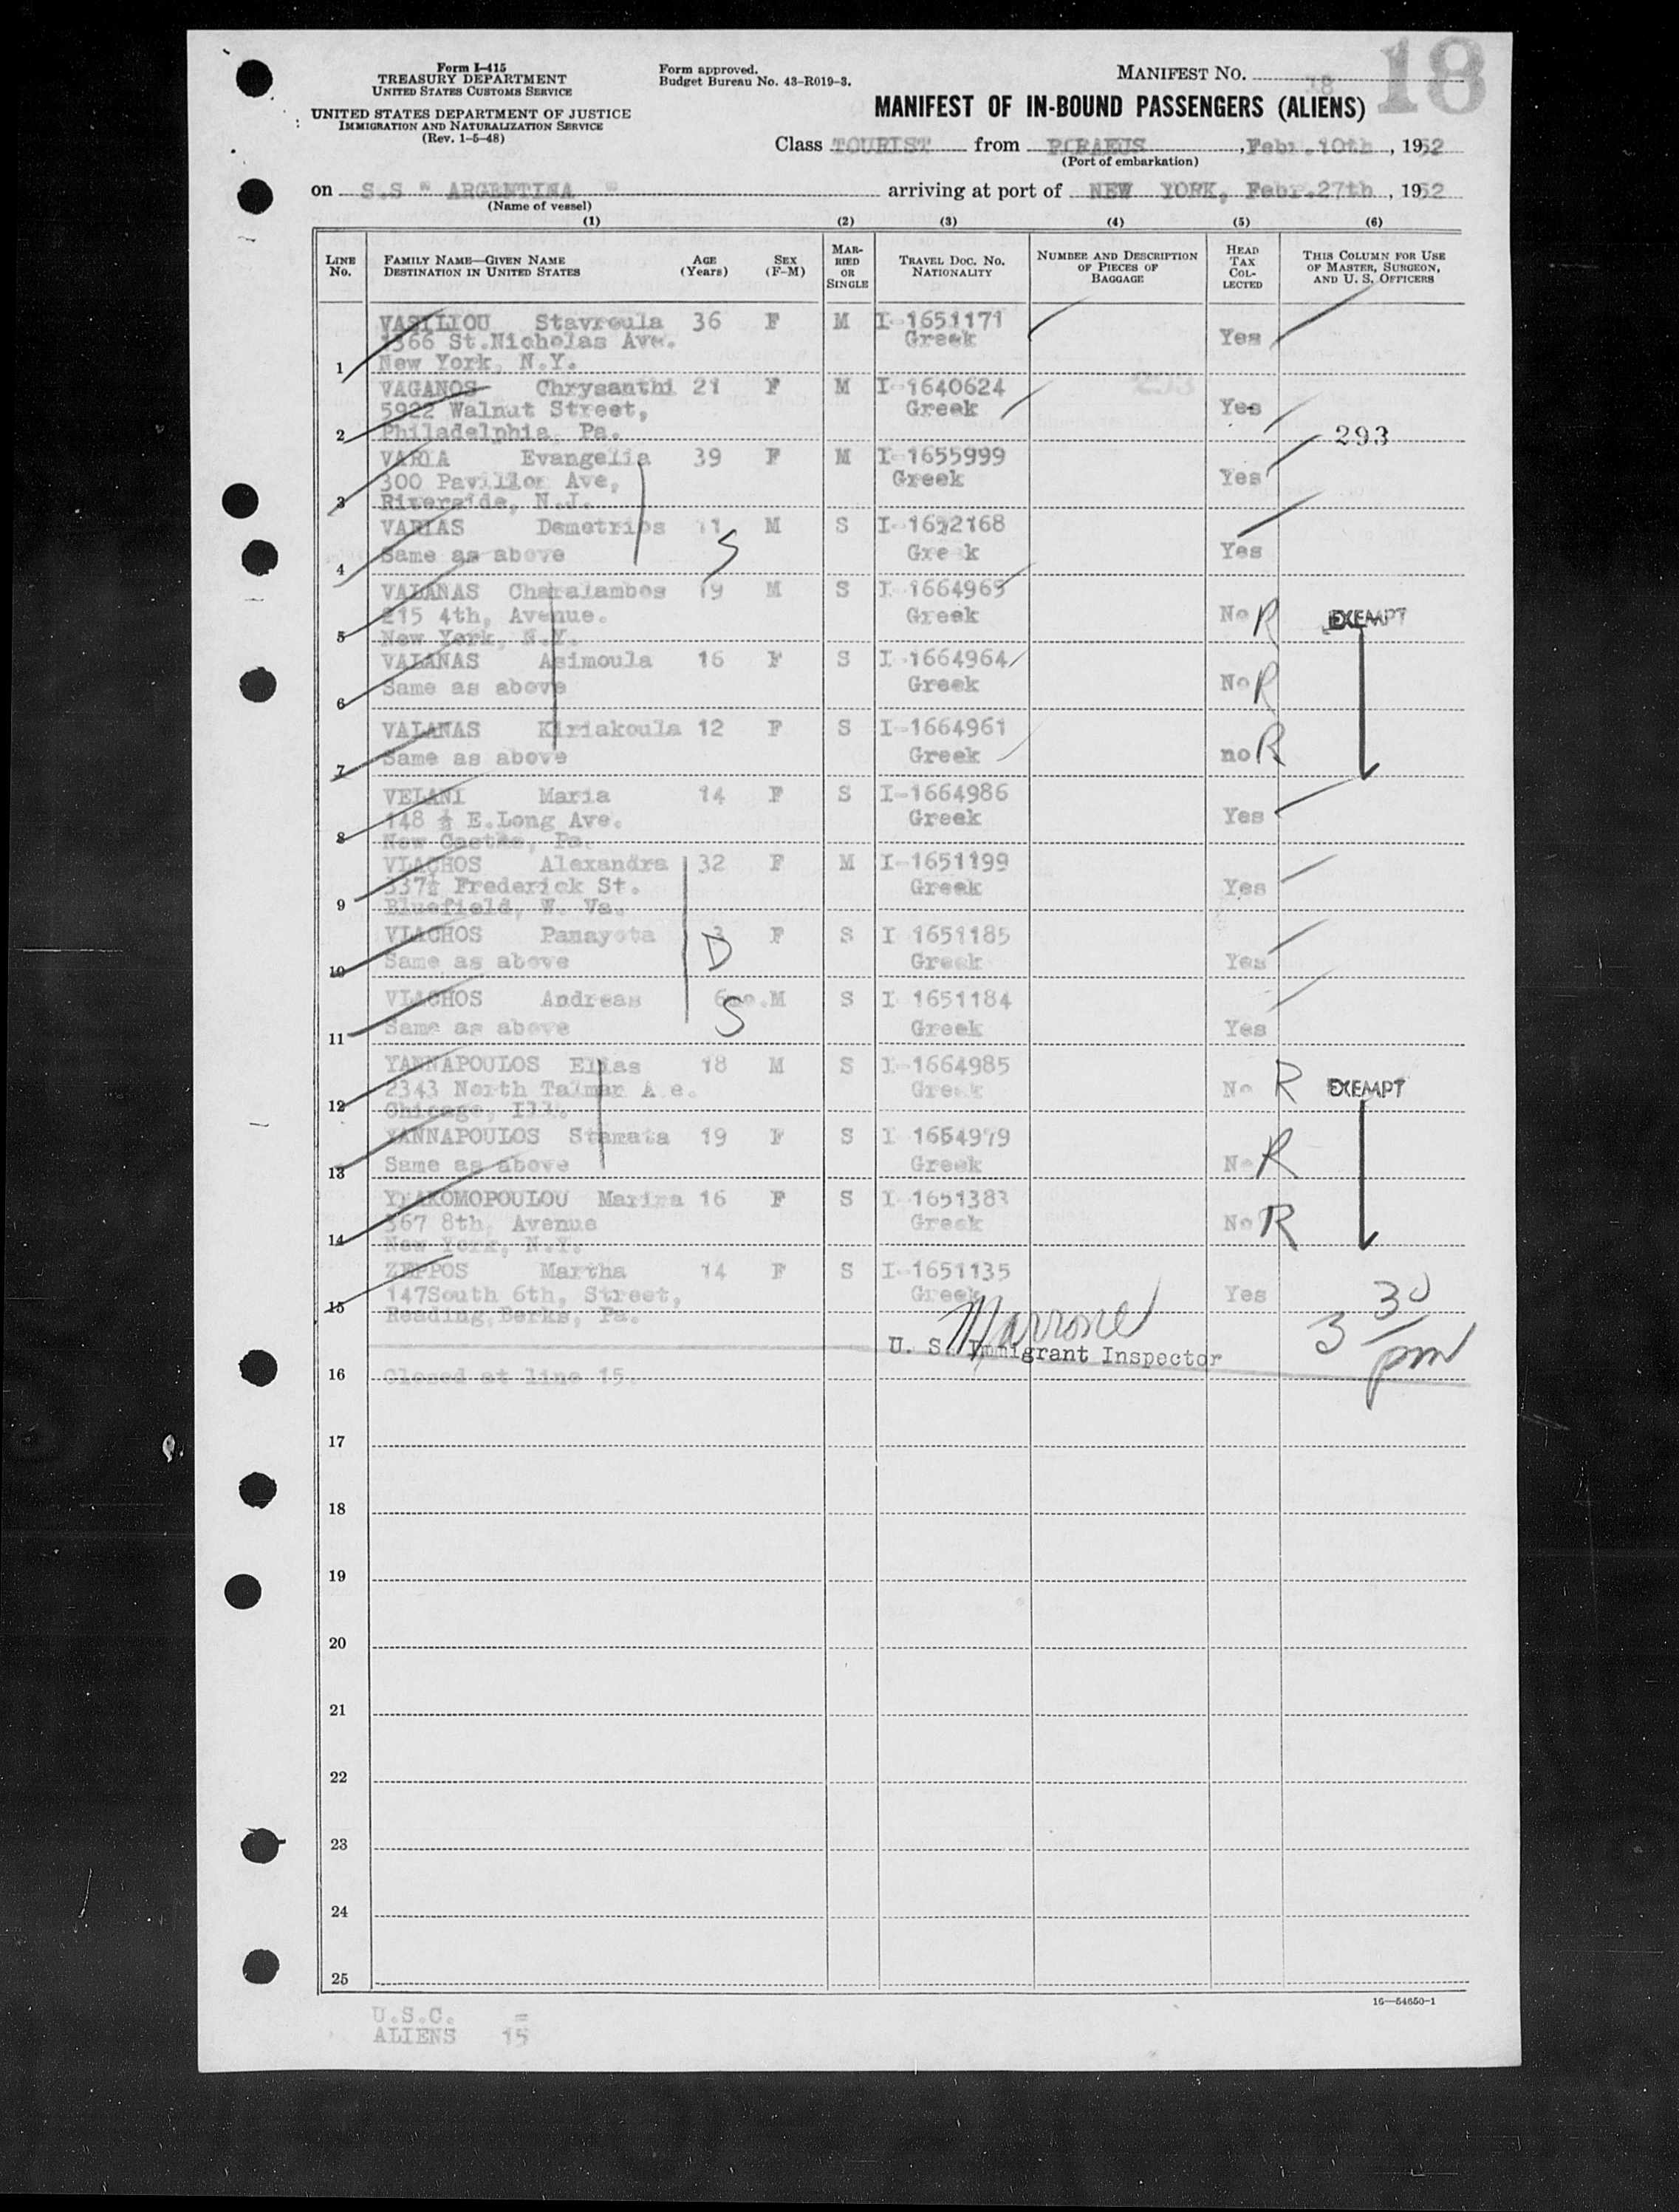 Form I-415
TREASURY DEPARTMENT
UNITED STATES CUSTOMS SERVICE
UNITED STATES DEPARTMENT OF JUSTICE
IMMIGRATION AND NATURALIZATION SERVICE
(Rev. 1-5-48)
Form approved.
Budget Bureau No. 43-R019-3.
MANIFEST NO. 18
18
MANIFEST OF IN-BOUND PASSENGERS (ALIENS)
Class TOURIST from PIRAEUS, Febr.10th, 1952
(Port of embarkation)
on S.S " ARGENTINA " arriving at port of NEW YORK, Febr.27th, 1952
(Name of vessel)
(1) (2) (3) (4) (5) (6)
LINE No. FAMILY NAME—GIVEN NAME DESTINATION IN UNITED STATES AGE (Years) SEX (F-M) MARRIED OR SINGLE TRAVEL DOC. NO. NATIONALITY NUMBER AND DESCRIPTION OF PIECES OF BAGGAGE HEAD TAX COLLECTED THIS COLUMN FOR USE OF MASTER, SURGEON, AND U. S. OFFICERS
VASILIOU Stavroula 36 F M I-1651171
1366 St.Nicholas Ave. Greek Yes
1 New York, N.Y.
VAGANOS Chrysanthi 21 F M I-1640624 293
5922 Walnut Street, Greek Yes
2 Philadelphia, Pa. 293
VARIA Evangelia 39 F M I-1655999
300 Pavillon Ave, Greek Yes
3 Riverside, N.J.
VARIAS Demetrios 11 M S I-1652168
4 Same as above S Greek Yes
VALANAS Charalambos 19 M S I-1664965
215 4th, Avenue. Greek No R EXEMPT
5 New York, N.Y.
VALANAS Asimoula 16 F S I-1664964
6 Same as above Greek No R
VALANAS Kiriakoula 12 F S I-1664961
7 Same as above Greek no R
VELANI Maria 14 F S I-1664986
148 ½ E.Long Ave. Greek Yes
8 New Castle, Pa.
VLACHOS Alexandra 32 F M I-1651199
337½ Frederick St. Greek Yes
9 Bluefield, W. Va.
VLACHOS Panayota 3 F S I 1651185
10 Same as above D Greek Yes
VLACHOS Andreas 6mo. M S I 1651184
11 Same as above S Greek Yes
YANNAPOULOS Elias 18 M S I-1664985
2343 North Talmar A e. Greek No R EXEMPT
12 Chicago, Ill.
YANNAPOULOS Stamata 19 F S I 1664979
13 Same as above Greek No R
YIAKOMOPOULOU Marina 16 F S I 1651383
367 8th, Avenue Greek No R
14 New York, N.Y.
ZEPPOS Martha 14 F S I-1651135
147South 6th, Street, Greek Yes
15 Reading,Berks, Pa.
Marrone
U. S. Immigrant Inspector
3 30 pm
16 Closed at line 15.
17
18
19
20
21
22
23
24
25
16—54650-1
U.S.C. =
ALIENS 15